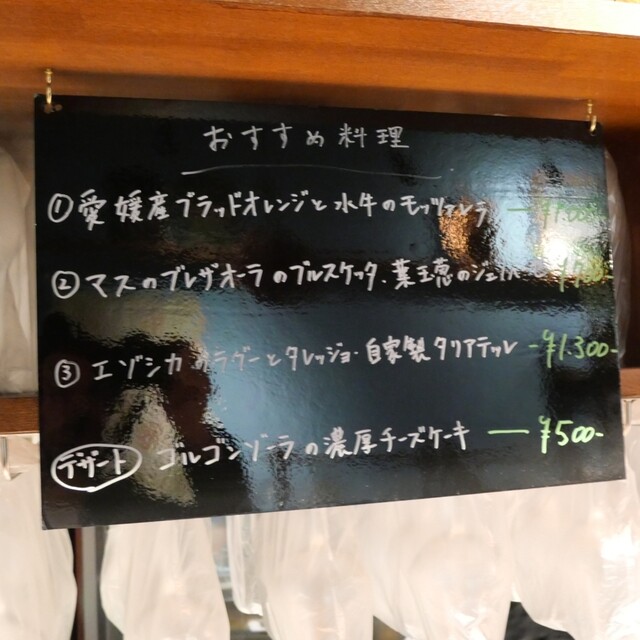 おすすめ料理
① 愛媛産ブラッドオレンジと水牛のモッツァレラ
② マスのブレザオーラのブルスケッタ、葉玉葱の
③ エゾシカのラグーとタレッジョ・自家製タリアテッレ -¥1.300-
デザート ゴルゴンゾーラの濃厚チーズケーキ — ¥500-